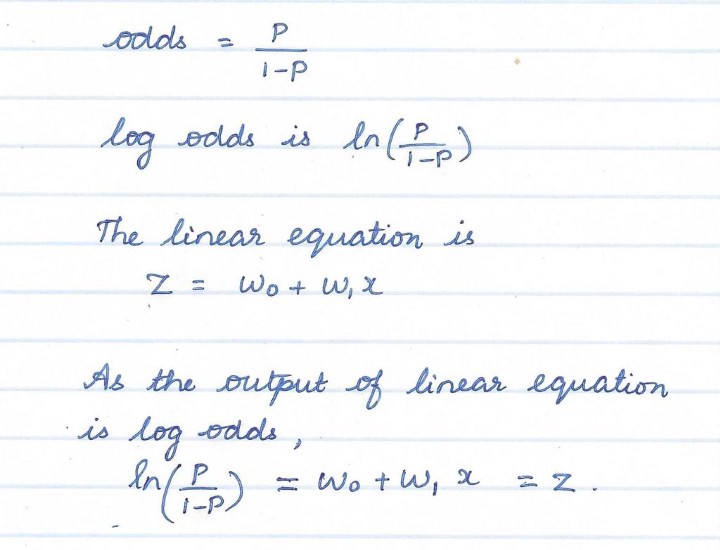 odds = P/(1-P)
log odds is ln(P/(1-P))
The linear equation is
Z = W₀ + W₁ x
As the output of linear equation
is log odds,
ln(P/(1-P)) = W₀ + W₁ x = Z.